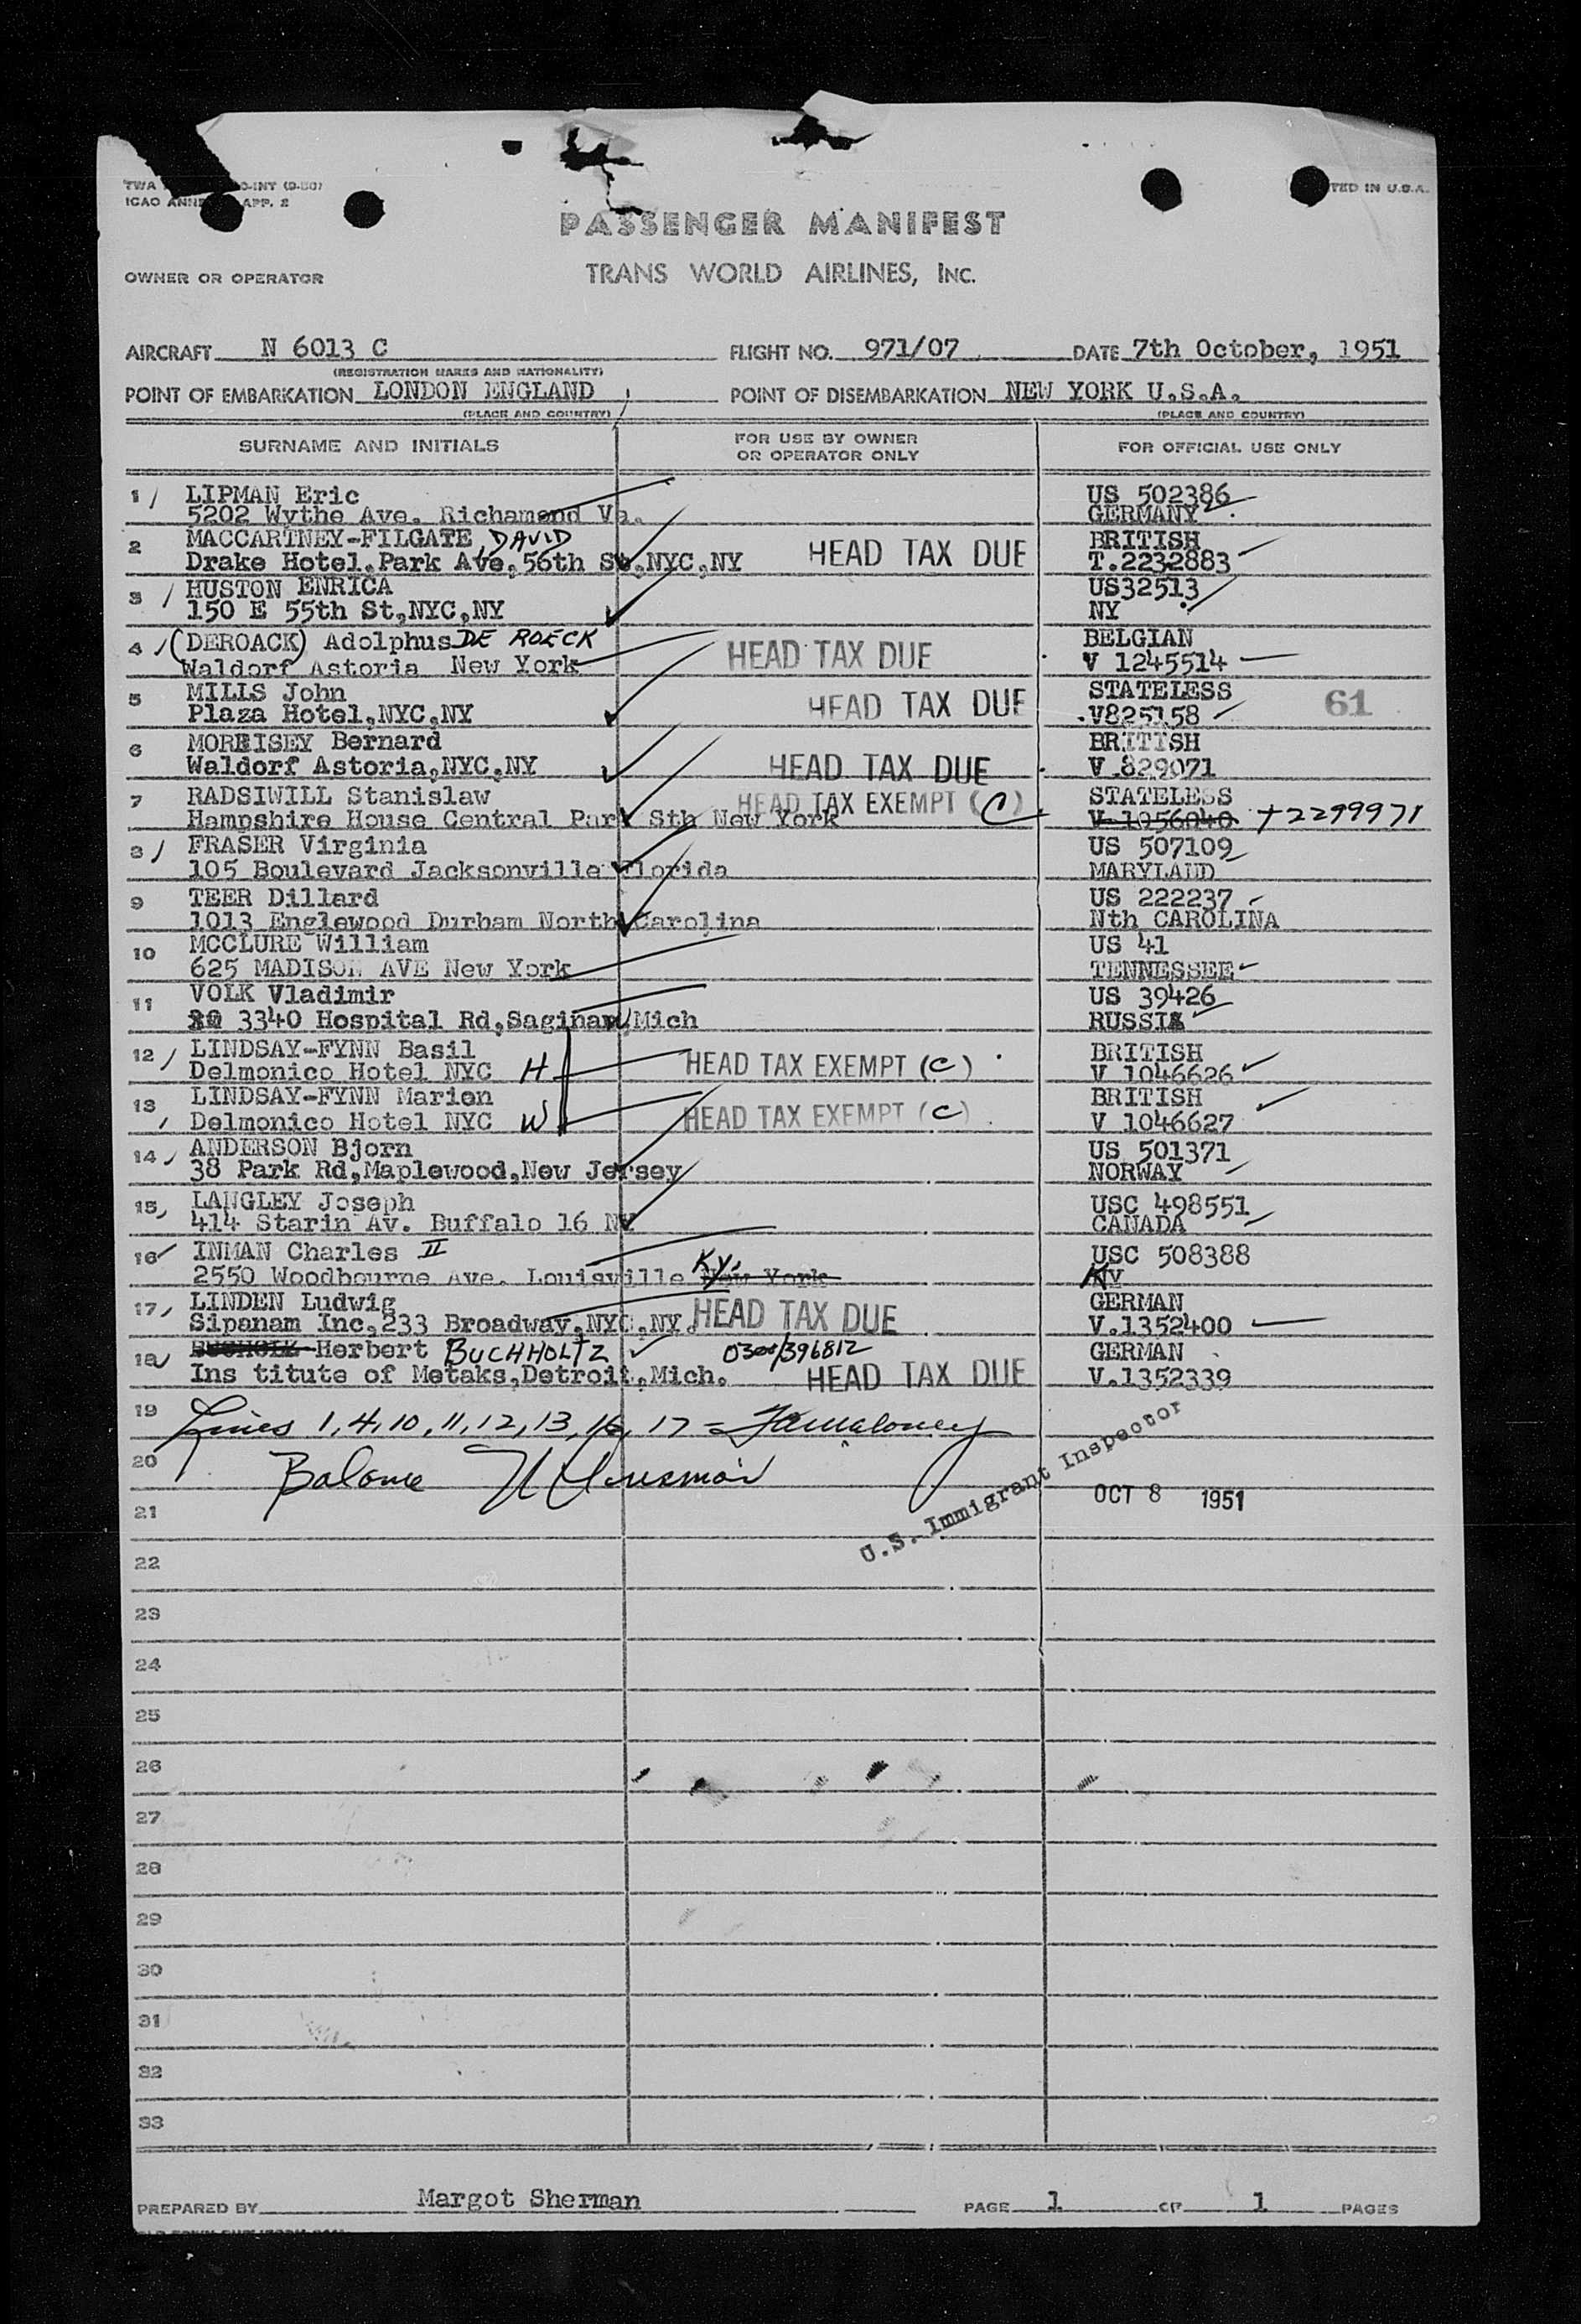 TWA O-INT (9-50)
ICAO ANNE APP. 2
TED IN U.S.A.
PASSENGER MANIFEST
OWNER OR OPERATOR TRANS WORLD AIRLINES, INC.
AIRCRAFT N 6013 C FLIGHT NO. 971/07 DATE 7th October, 1951
(REGISTRATION MARKS AND NATIONALITY)
POINT OF EMBARKATION LONDON ENGLAND POINT OF DISEMBARKATION NEW YORK U.S.A.
(PLACE AND COUNTRY) (PLACE AND COUNTRY)
SURNAME AND INITIALS FOR USE BY OWNER OR OPERATOR ONLY FOR OFFICIAL USE ONLY
1 LIPMAN Eric US 502386
5202 Wythe Ave. Richamond Va. GERMANY
2 MACCARTNEY-FILGATE, DAVID HEAD TAX DUE BRITISH
Drake Hotel.Park Ave,56th St,NYC,NY T.2232883
3 HUSTON ENRICA US32513
150 E 55th St,NYC,NY NY
4 (DEROACK) Adolphus DE ROECK HEAD TAX DUE BELGIAN
Waldorf Astoria New York V 1245514
5 MILLS John HEAD TAX DUE STATELESS 61
Plaza Hotel,NYC,NY V825158
6 MORRISEY Bernard HEAD TAX DUE BRITISH
Waldorf Astoria,NYC,NY V 829071
7 RADSIWILL Stanislaw HEAD TAX EXEMPT (C) STATELESS
Hampshire House Central Park Sth New York V 1056040 + 2299971
8 FRASER Virginia US 507109
105 Boulevard Jacksonville Florida MARYLAND
9 TEER Dillard US 222237
1013 Englewood Durham North Carolina Nth CAROLINA
10 MCCLURE William US 41
625 MADISON AVE New York TENNESSEE
11 VOLK Vladimir US 39426
3340 Hospital Rd,Saginaw,Mich RUSSIA
12 LINDSAY-FYNN Basil HEAD TAX EXEMPT (C) BRITISH
Delmonico Hotel NYC H V 1046626
13 LINDSAY-FYNN Marion HEAD TAX EXEMPT (C) BRITISH
Delmonico Hotel NYC W V 1046627
14 ANDERSON Bjorn US 501371
38 Park Rd,Maplewood,New Jersey NORWAY
15 LANGLEY Joseph USC 498551
414 Starin Av. Buffalo 16 NY CANADA
16 INMAN Charles II USC 508388
2550 Woodbourne Ave. Louisville Ky. New York KY
17 LINDEN Ludwig HEAD TAX DUE GERMAN
Sipanam Inc,233 Broadway,NYC,NY. V.1352400
18 Herbert BUCHHOLTZ 0300/396812 GERMAN
Ins titute of Metaks,Detroit,Mich. HEAD TAX DUE V.1352339
19 Lines 1, 4, 10, 11, 12, 13, 16, 17 =
20 Balance
U.S. Immigrant Inspector
OCT 8 1951
21
22
23
24
25
26
27
28
29
30
31
32
33
PREPARED BY Margot Sherman PAGE 1 OF 1 PAGES